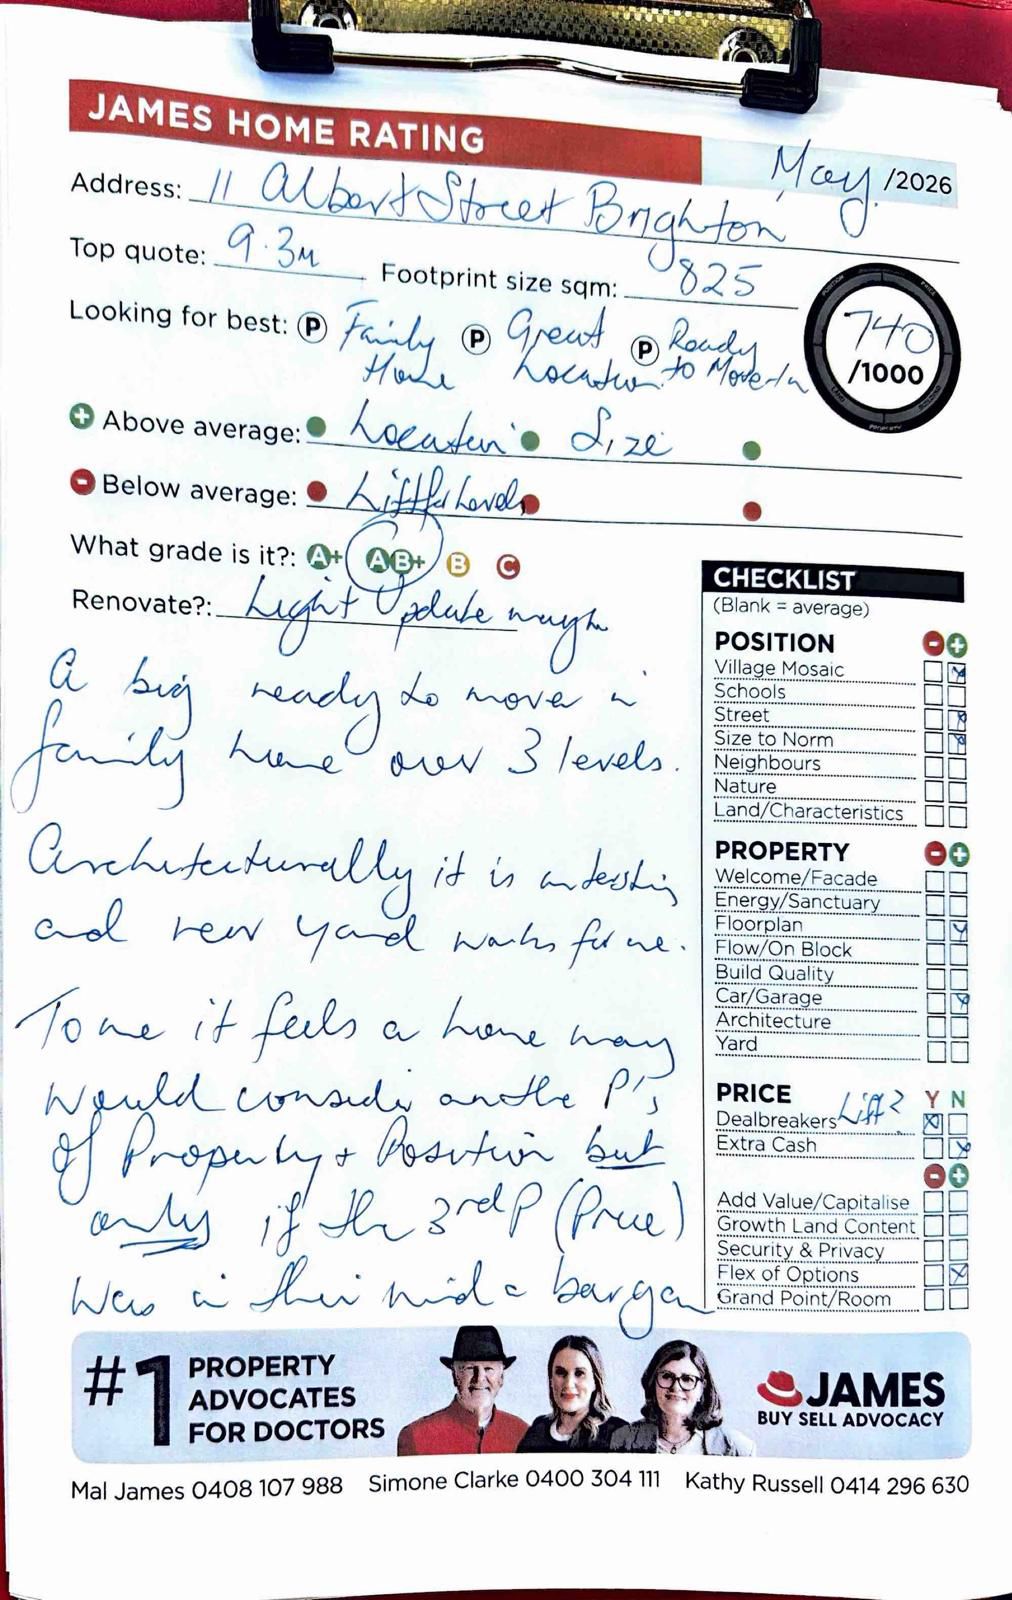 JAMES HOME RATING
May /2026
Address: 11 Albert Street Brighton
Top quote: 9.3M Footprint size sqm: 825
740
/1000
Looking for best: P Family Home P Great Location P Ready to Move In
+ Above average: Location Size
- Below average: Lift for Levels
What grade is it?: A+ AB+ B C
Renovate?: Light Update maybe
A big ready to move in
family home over 3 levels.
Architecturally it is interesting
and rear yard works for me.
To me it feels a home many
would consider on the P's
of Property + Position but
only if the 3rd P (Price)
was in their mind a bargain
CHECKLIST
(Blank = average)
POSITION - +
Village Mosaic
Schools
Street
Size to Norm
Neighbours
Nature
Land/Characteristics
PROPERTY - +
Welcome/Facade
Energy/Sanctuary
Floorplan
Flow/On Block
Build Quality
Car/Garage
Architecture
Yard
PRICE Y N
Dealbreakers Lift?
Extra Cash
- +
Add Value/Capitalise
Growth Land Content
Security & Privacy
Flex of Options
Grand Point/Room
#1 PROPERTY
ADVOCATES
FOR DOCTORS
JAMES
BUY SELL ADVOCACY
Mal James 0408 107 988 Simone Clarke 0400 304 111 Kathy Russell 0414 296 630